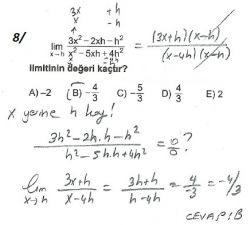 3x +h
x -h
8/ lim x→h (3x² – 2xh – h²)/(x² – 5xh + 4h²) = (3x+h)(x-h)/(x-4h)(x-h)
limitinin değeri kaçtır?
A) –2 B) –4/3 C) –5/3 D) 4/3 E) 2
x yerine h koy!
(3h² – 2h.h – h²)/(h² – 5h.h + 4h²) = 0/0 ?
lim x→h (3x+h)/(x-4h) = (3h+h)/(h-4h) = 4/-3 = -4/3
CEVAP:B